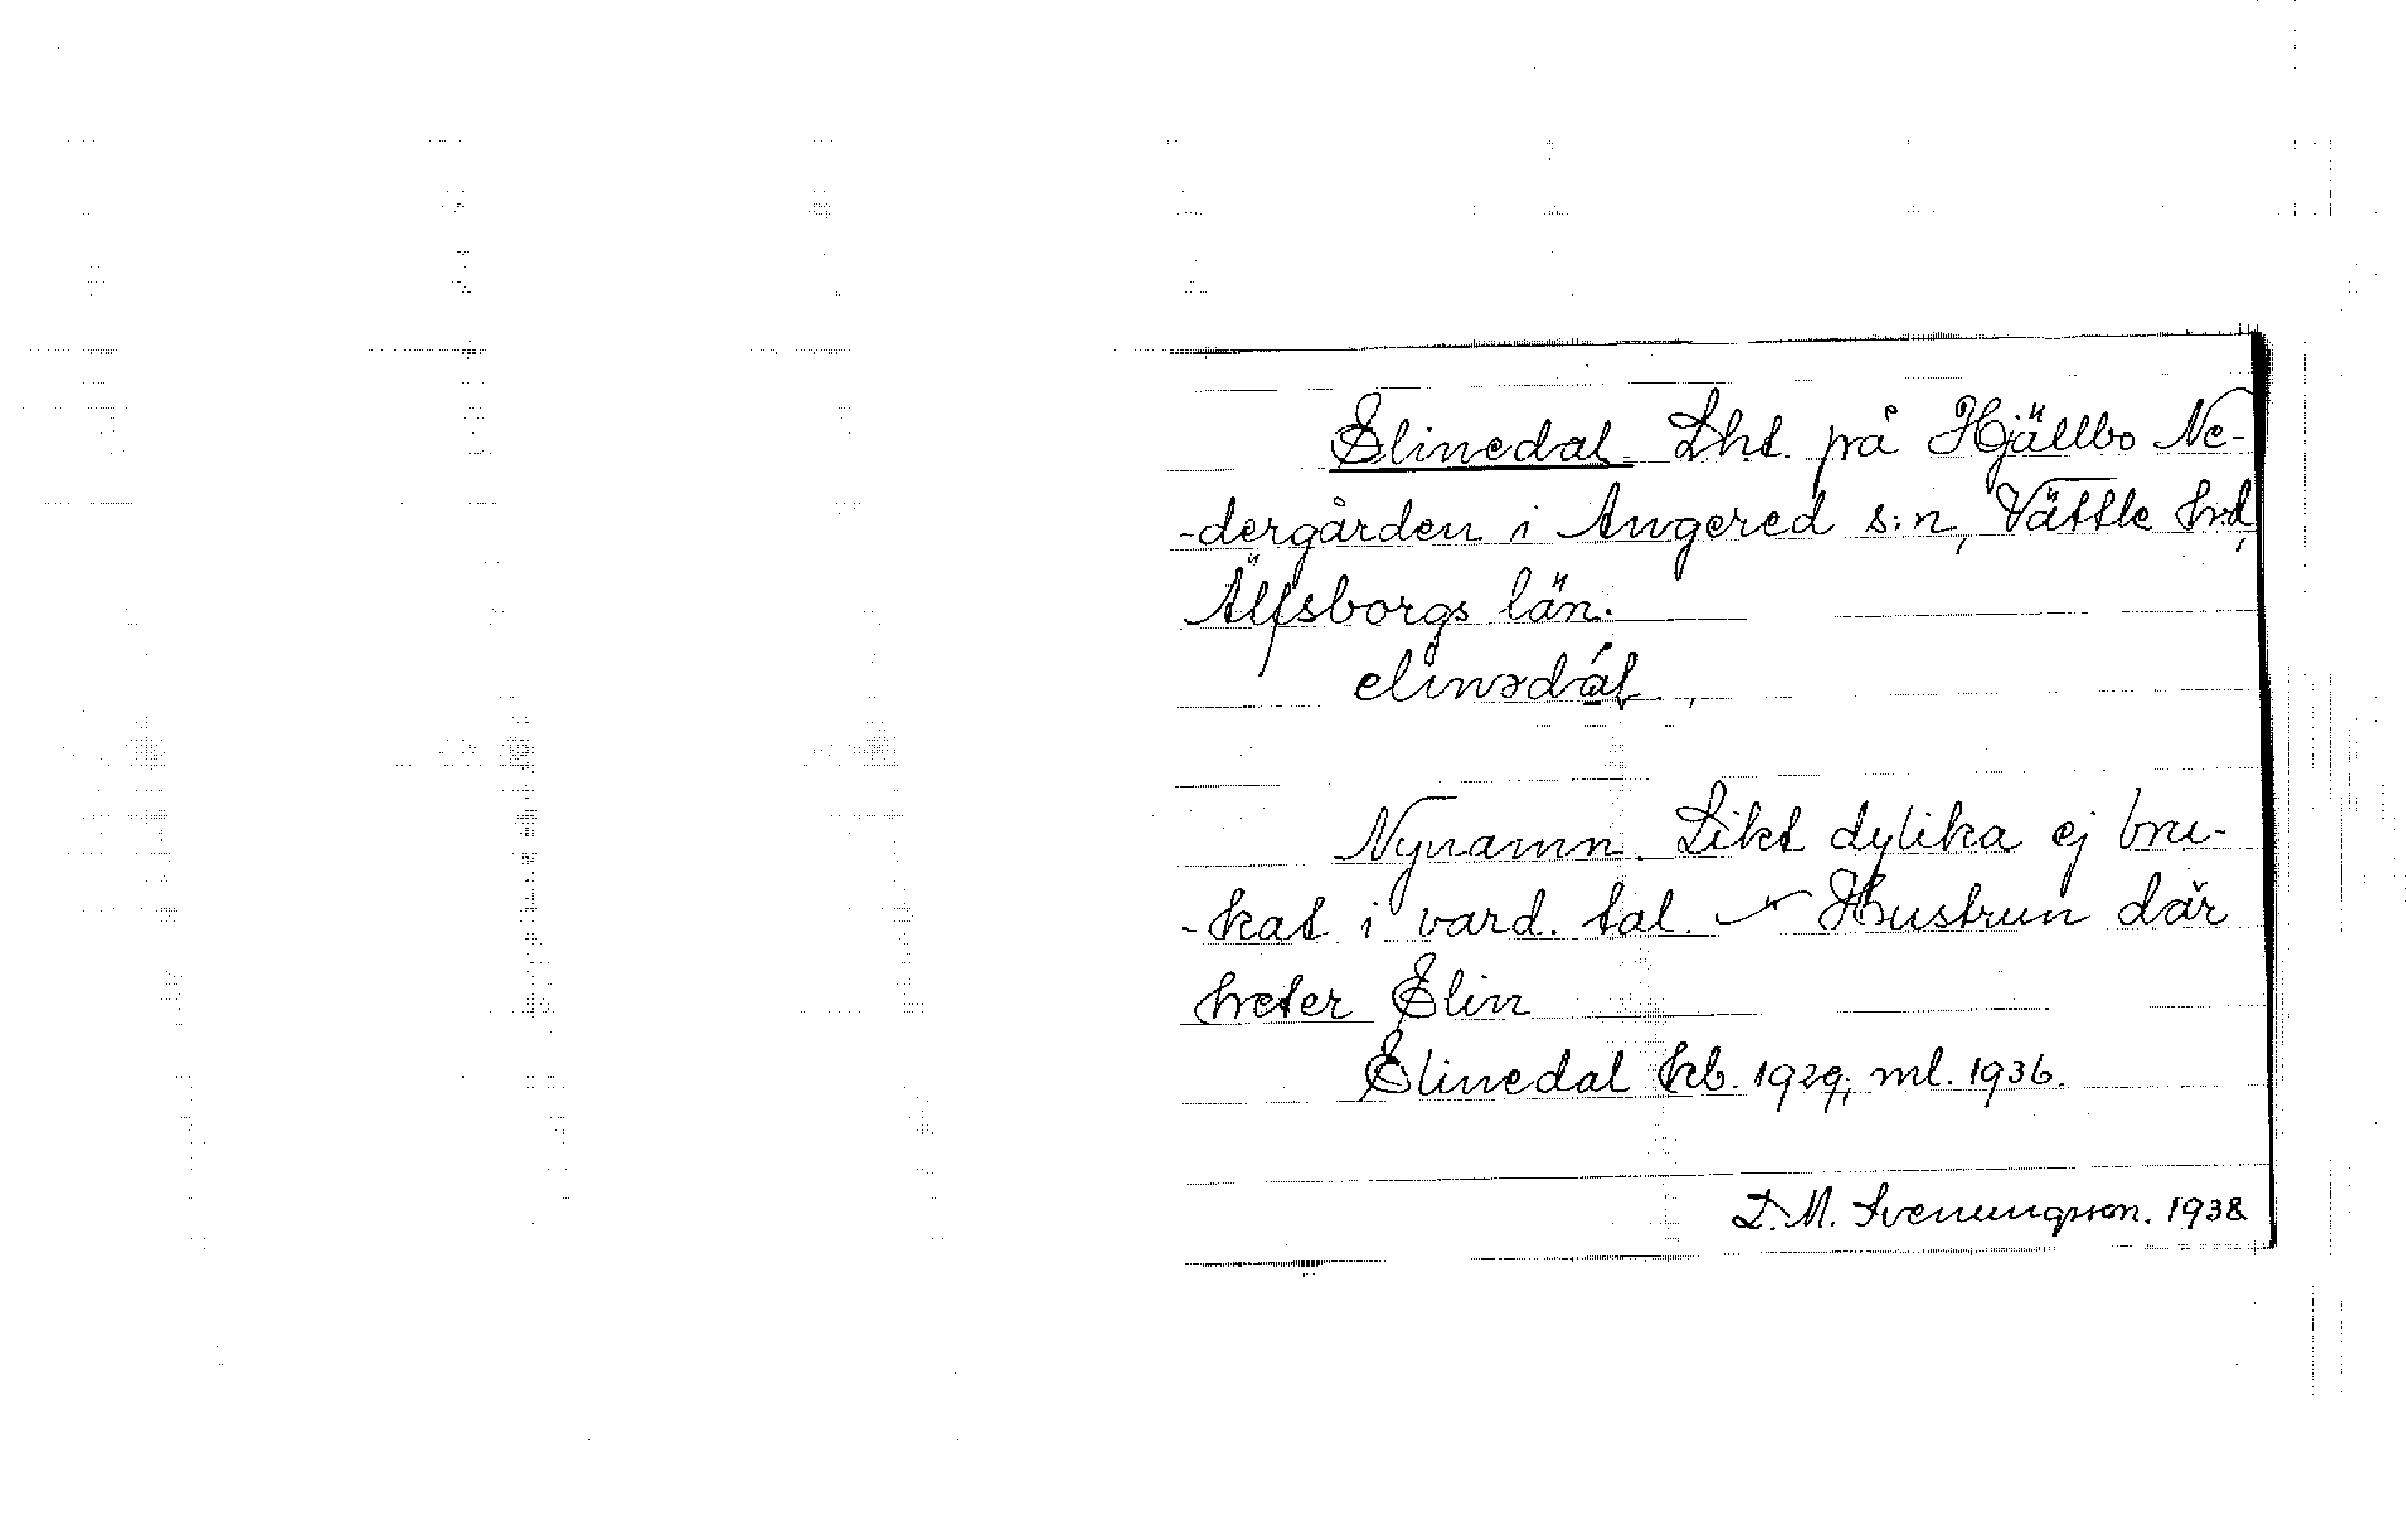 Elinedal. Lht. på Hjällbo Ne-
-dergården i Angered s:n, Vättle hrd,
Älfsborgs län.
elinədál
Nynamn. Likt dylika ej bru-
-kat i vard. tal. Hustrun där
heter Elin
Elinedal kb. 1929, ml. 1936.
D. M. Svenungsson. 1938